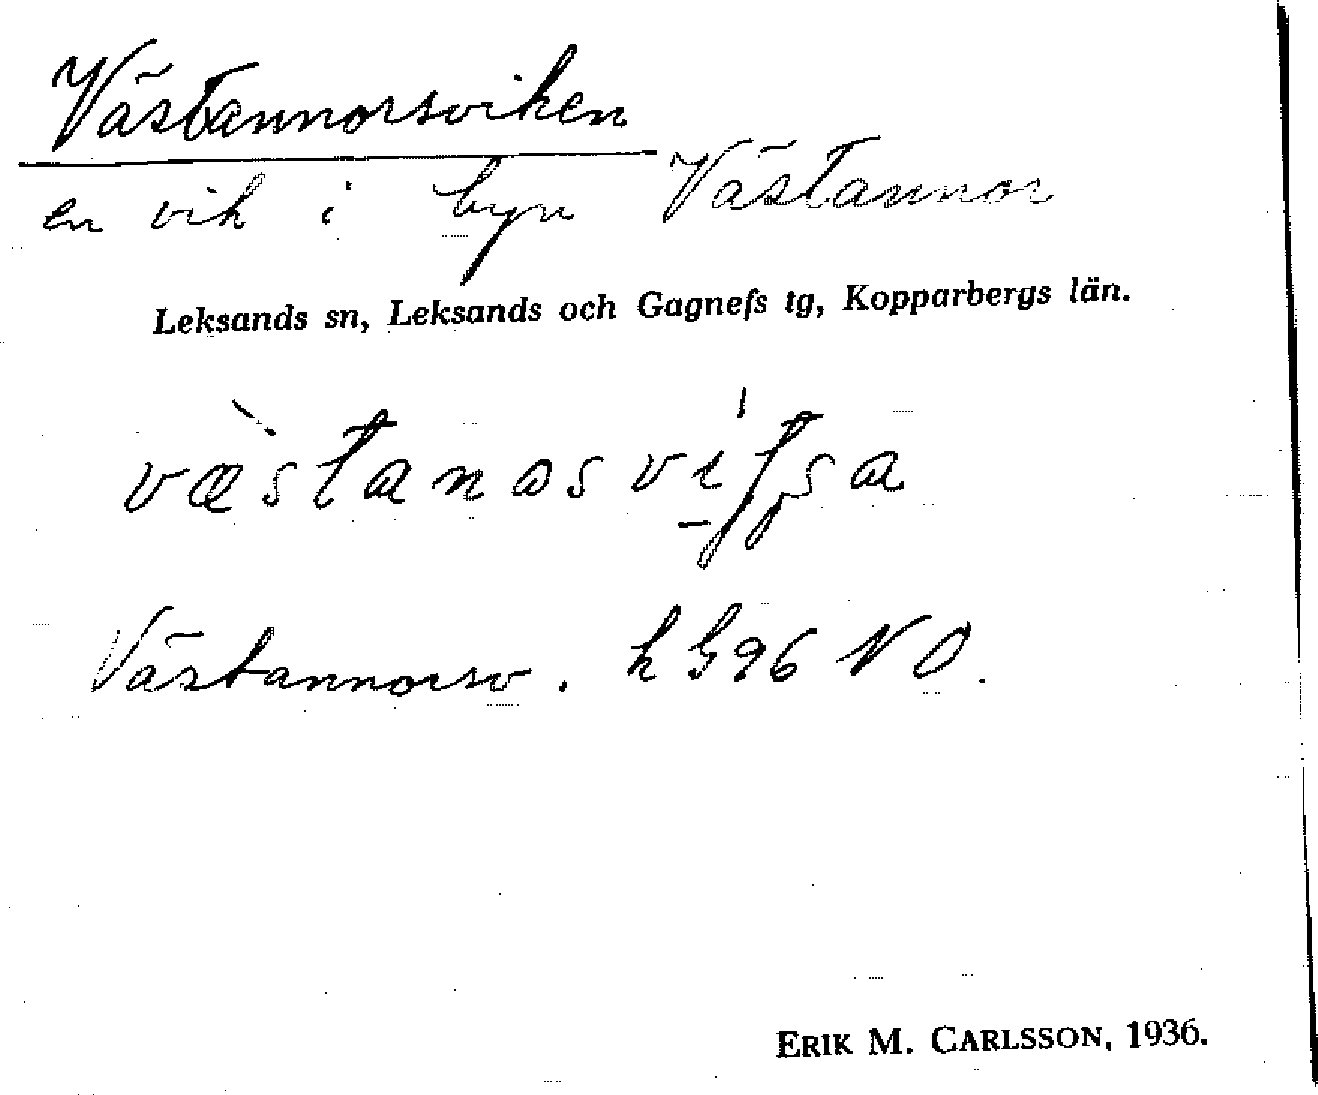 Västannorsviken
en vik i byn Västannor
Leksands sn, Leksands och Gagnefs tg, Kopparbergs län.
Västannorsv. h G 96 NO.
ERIK M. CARLSSON, 1936.